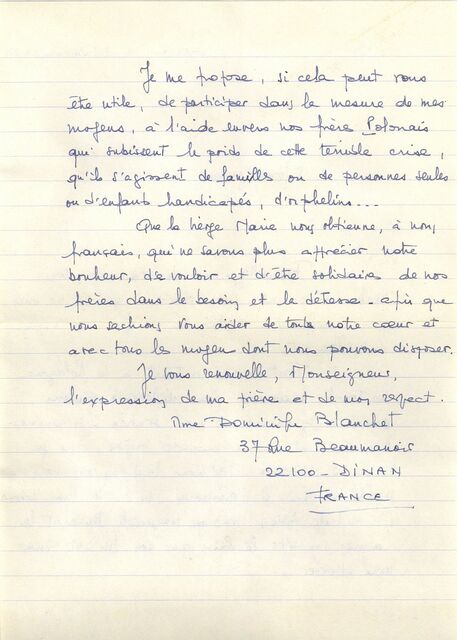 Je me propose, si cela peut vous
être utile, de participer dans la mesure de mes
moyens, à l'aide envers nos frères Polonais
qui subissent le poids de cette terrible crise,
qu'ils s'agissent de familles ou de personnes seules
ou d'enfants handicapés, d'orphelins...
Que la Vierge Marie nous obtienne, à nous,
français, qui ne savons plus apprécier notre
bonheur, de vouloir et d'être solidaires de nos
frères dans le besoin et la détresse - afin que
nous sachions vous aider de toute notre cœur et
avec tous les moyen dont nous pouvons disposer.
Je vous renouvelle, Monseigneur,
l'expression de ma prière et de mon respect.
Mme Dominique Blanchet
37 Rue Beaumanoir
22100 - DINAN
FRANCE